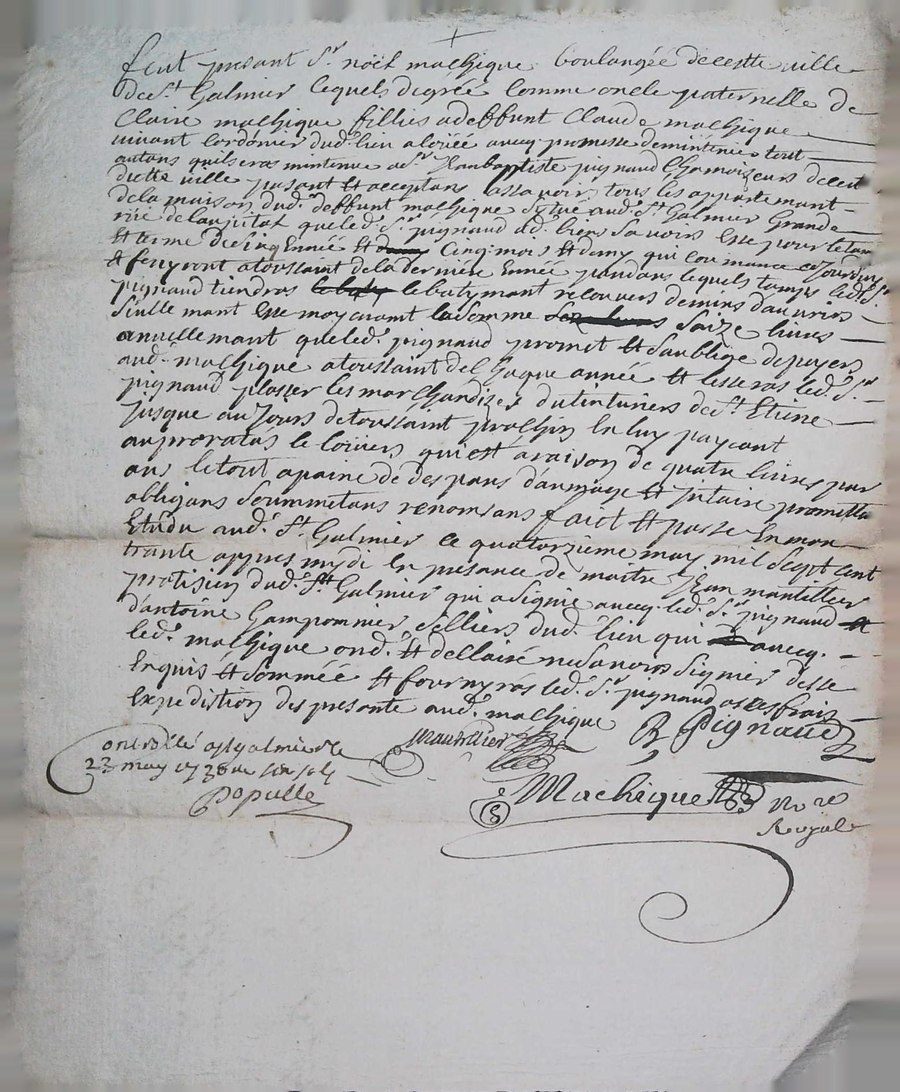 feut presant Sr. noël machique boulangée de cestte ville
de St. Galmier lequels degrée comme oncle paternelle de
Claire machique fillies a deffunt Claude machique
vivant Cordonier dud. lieu a loüée avecq promesse demintenir tout
autans quil seras mintenue a Sr. Jean baptiste pignaud Chamoizeurs de cett
ditte ville presant et acceptans assavoir tous les appartemant
de la maison dud. deffunt machique Situé aud. St. Galmier Grande
rüe que led. Sr. pignaud ad. bien savoirs Et ce pour le tam
Et terme de cinq Ennée Et Cinq mois Et demy qui commance ce Jourdhuy
Et feniront a toussaint de la derniere Ennée pandans lequels tamps led. Sr.
pignaud tiendras le batymant recouvers de mins dauvros
Siulle mant Et ce moyenant la Somme Saize livres
annuellemant que led. pignaud promet Et Soublige de payer
aud. machique a toussaint de Chaque année Et lesseras led. Sr.
pignaud plasser les marchandizes du tinturiers de St. Etiene
Jusque au Jours de toussaint prochin En luy payeant
au proratas le loüiers qui est a raison de quatre livres par
an le tout a paine de des pans dammage Et Jnteire promettans
obligans Soummetans renonsans faict Et passé En mon
Etudu aud. St. Galmier ce quatorzieme may mil Sept cent
trante appres mydi En presance de maitre Jean mantillier
pratisien dud. St. Galmier qui a Signié avecq led. Sr. pignaud Et
d'antoine Gampommier Selliers dud. lieu qui avecq
led. machique ond. Et dellairé ne Savoiros Signier de ce
Enquis Et Sommée Et fournyras led. Sr. pignaud a ses frais
Expedistion des presante aud. machique
mantillier
R Pignaud
Controllé a St galmier le
23 may 1730 Six Sols
Populle
Machique Nore
Royal